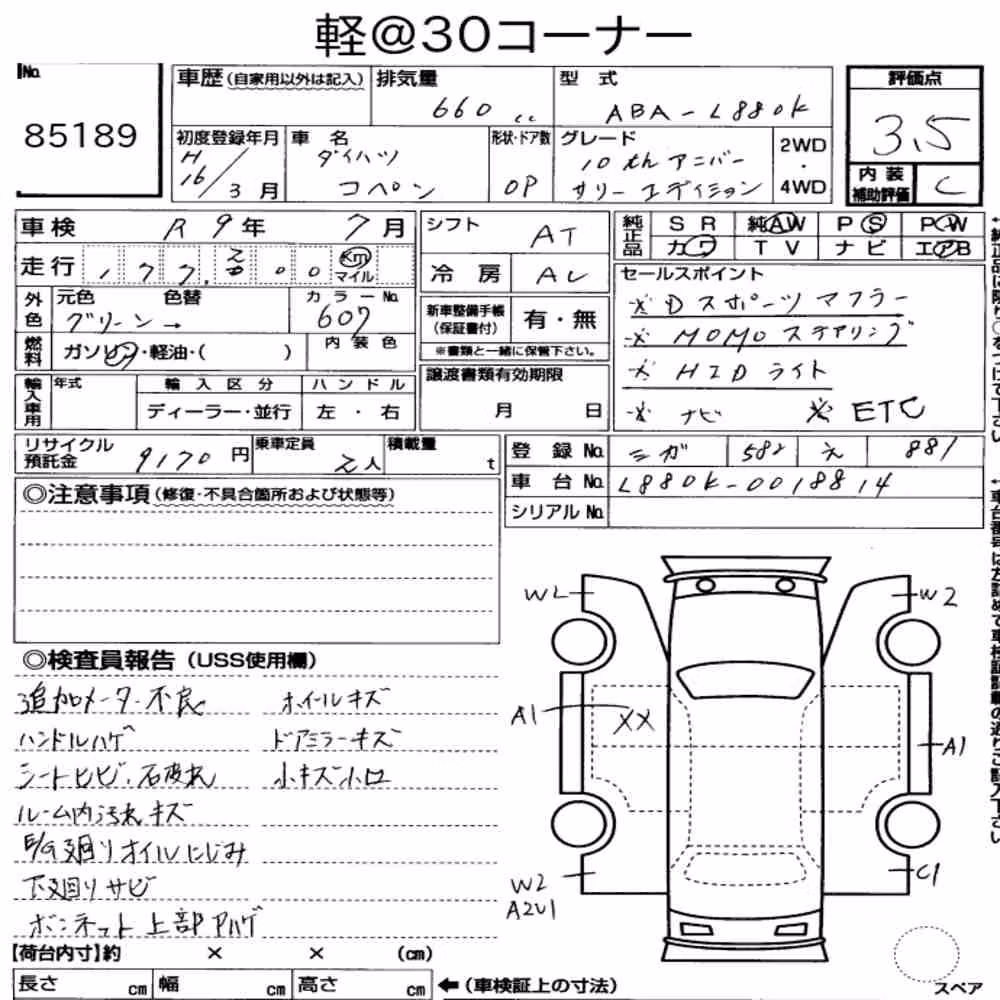 軽@30コーナー
No. 85189
車歴(自家用以外は記入) 排気量 660 cc 型式 ABA-L880K 評価点 3.5
初度登録年月 H16/3月 車名 ダイハツ コペン 形状・ドア数 OP グレード 10th アニバーサリーエディション 2WD・4WD 内装補助評価 C
車検 R9年 7月 シフト AT 純正品 SR 純AW PS PW
カワ TV ナビ エアB
走行 Km マイル 冷房 AC
セールスポイント
外色 元色 グリーン→ 色替 カラーNo. 607
新車整備手帳(保証書付) 有・無
※書類と一緒に保管下さい。
※ Dスポーツマフラー
※ MOMOステアリング
※ HIDライト
※ ナビ ※ ETC
燃料 ガソリン・軽油・( ) 内装色
輸入車用 年式 輸入区分 ハンドル
ディーラー・並行 左・右
譲渡書類有効期限
月 日
リサイクル預託金 9170円 乗車定員 2人 積載量 t
登録No. シガ 582 え 881
車台No. L880K-0018814
シリアルNo.
◎注意事項(修復・不具合箇所および状態等)
◎検査員報告(USS使用欄)
追加メーター不良 ホイールキズ
ハンドルハゲ ドアミラーキズ
シートヒビ・破れ 小キズ小凹
ルーム内汚れキズ
廻りオイルにじみ
下廻りサビ
ボンネット上部ハゲ
W2
W2
A1
XX
A1
W2
A2U1
C1
スペア
【荷台内寸】約 × × (cm)
長さ cm 幅 cm 高さ cm ←(車検証上の寸法)